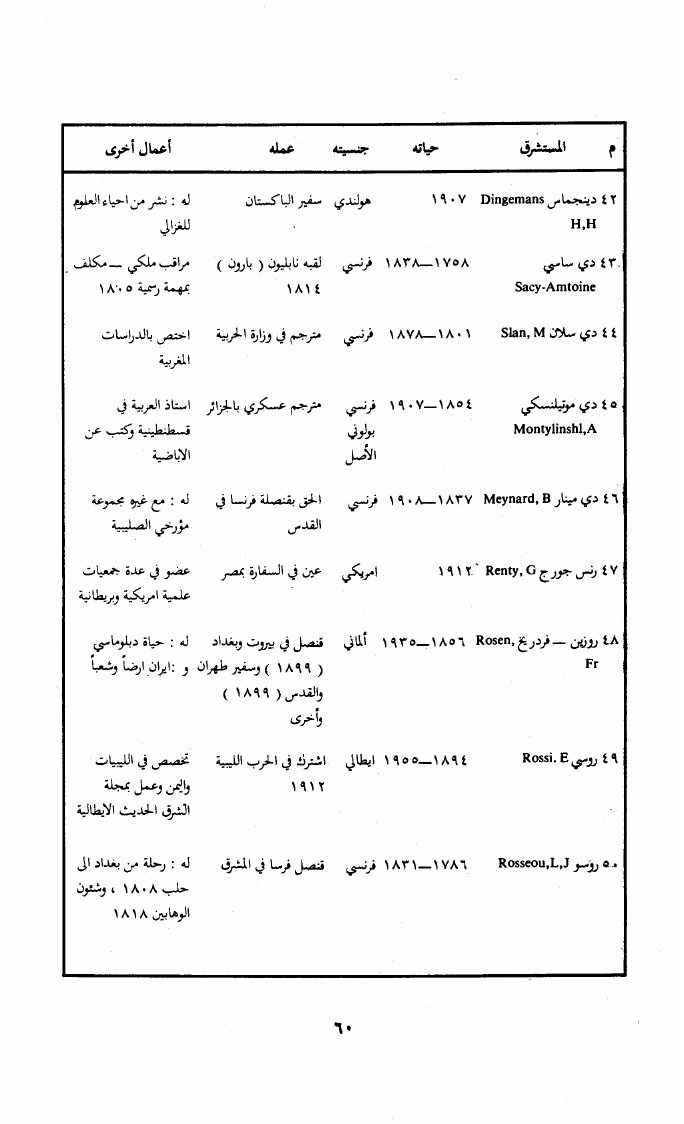 م المستشرق حياته جنسيته عمله أعمال أخرى
٤٢ دينجماس Dingemans ١٩٠٧ هولندي سفير الباكستان له : نشر من احياء العلوم
H,H للغزالي
٤٣ دي ساسي ١٧٥٨—١٨٣٨ فرنسي لقبه نابليون ( بارون ) مراقب ملكي — مكلف
Sacy-Amtoine ١٨١٤ بمهمة رسمية ١٨٠٥
٤٤ دي سلان Slan, M ١٨٠١—١٨٧٨ فرنسي مترجم في وزارة الحربية اختص بالدراسات
المغربية
٤٥ دي موتيلنسكي ١٨٥٤—١٩٠٧ فرنسي مترجم عسكري بالجزائر استاذ العربية في
Montylinshl,A بولوني قسطنطينية وكتب عن
الأصل الاباضية
٤٦ دي مينار Meynard, B ١٨٣٧—١٩٠٨ فرنسي الحق بقنصلة فرنسا في له : مع غيره مجموعة
القدس مؤرخي الصليبية
٤٧ رنس جورج Renty, G ١٩١٢ امريكي عين في السفارة بمصر عضو في عدة جمعيات
علمية امريكية وبريطانية
٤٨ روزين — فردريخ Rosen, ١٨٥٦—١٩٣٥ ألماني قنصل في بيروت وبغداد له : حياة دبلوماسي
Fr ( ١٨٩٩ ) وسفير طهران و :ايران ارضاً وشعباً
والقدس ( ١٨٩٩ )
وأخرى
٤٩ روسي Rossi. E ١٨٩٤—١٩٥٥ ايطالي اشترك في الحرب الليبية تخصص في الليبيات
١٩١٢ واليمن وعمل بمجلة
الشرق الحديث الايطالية
٥٠ روسو Rosseou,L,J ١٧٨٦—١٨٣١ فرنسي قنصل فرسا في المشرق له : رحلة من بغداد الى
حلب ١٨٠٨ ، وشئون
الوهابين ١٨١٨
٦٠